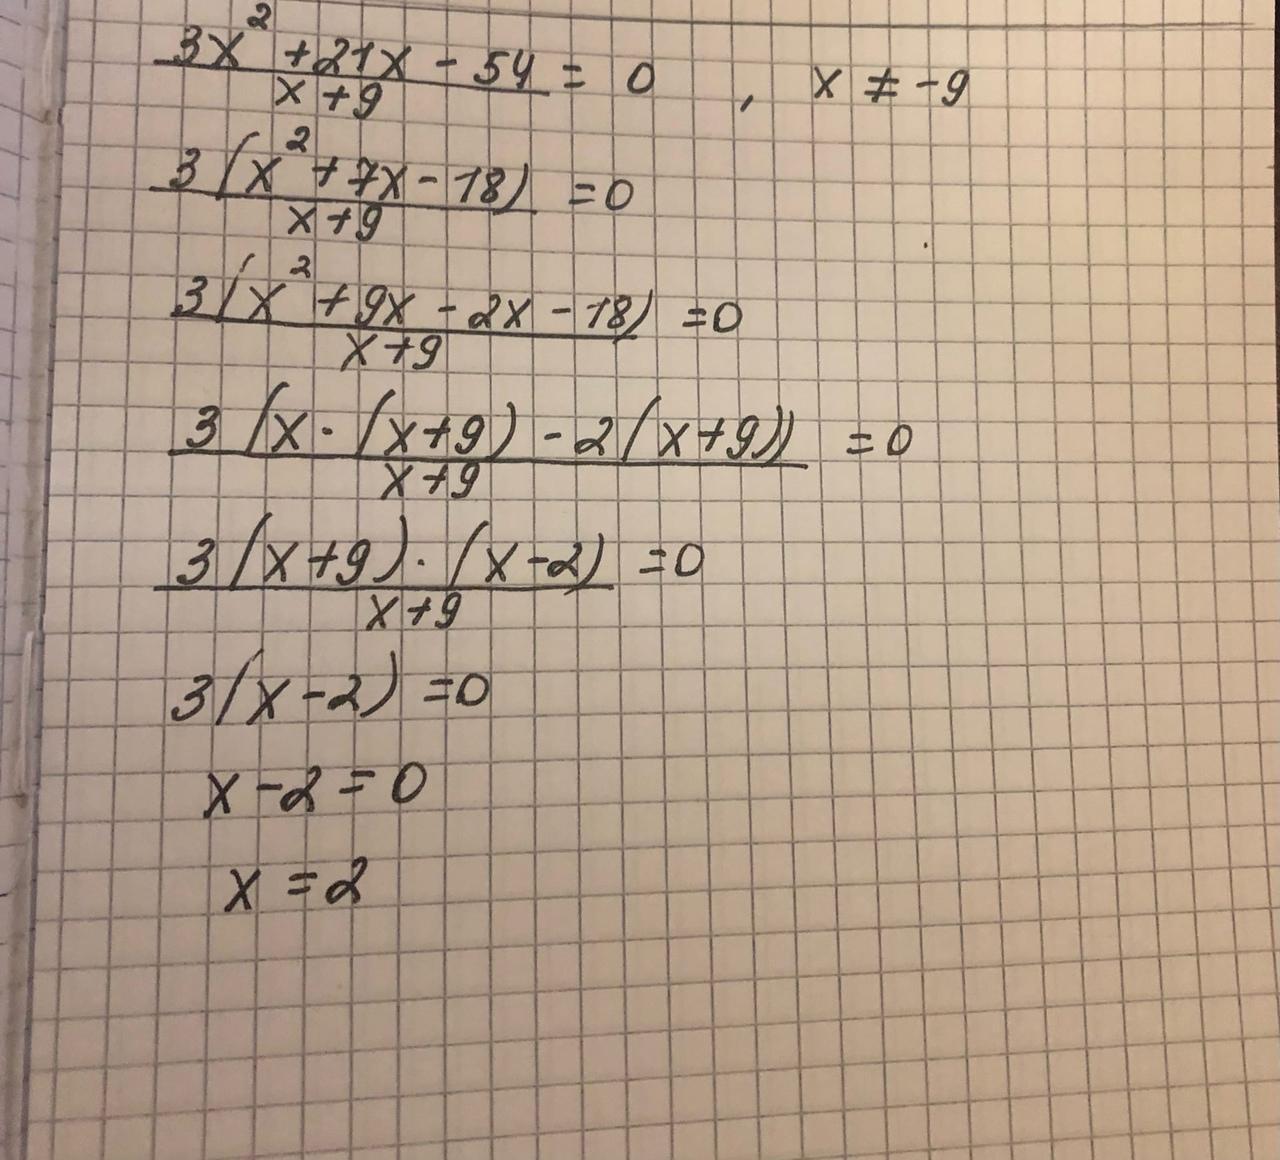 (3x² + 21x - 54)/(x + 9) = 0 , x ≠ -9
3(x² + 7x - 18)/(x + 9) = 0
3(x² + 9x - 2x - 18)/(x + 9) = 0
3(x · (x + 9) - 2(x + 9))/(x + 9) = 0
3(x + 9) · (x - 2)/(x + 9) = 0
3(x - 2) = 0
x - 2 = 0
x = 2